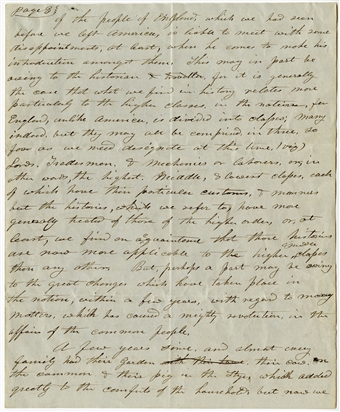 Page 3}
of the people of England, which we had seen
before we left America, is liable to meet with some
disappointments, at least, when he comes to make his
introduction amongst them. This may in part be
owing to the historian & traveller, for it is generally
the case that what we find in history relates more
particularly to the higher classes, in the nation, for
England, unlike America, is divided into classes, many
indeed, but they may all be comprised in three, so
far as we need designate at this time, (viz)
Lords, Tradesmen, & Mechanics or labourers, or, in
other words, the highest, Middle, & lowest classes, each
of which have their particular customs, & manners
but the histories, which we refer to, have more
generally treated of those of the higher order, or, at
least, we find on acquaintance that those histories
are now more applicable to the higher classes
than any others. But, perhaps a part may be owing
to the great changes which have taken place in
the nation, within a few years, with regard to many
matters, which has caused a mighty revolution, in the
affairs of the common people.
A few years since, and almost every
family had their garden, their cow on
the common & their pig in the Stye, which added
greatly to the comforts of the household, but now we